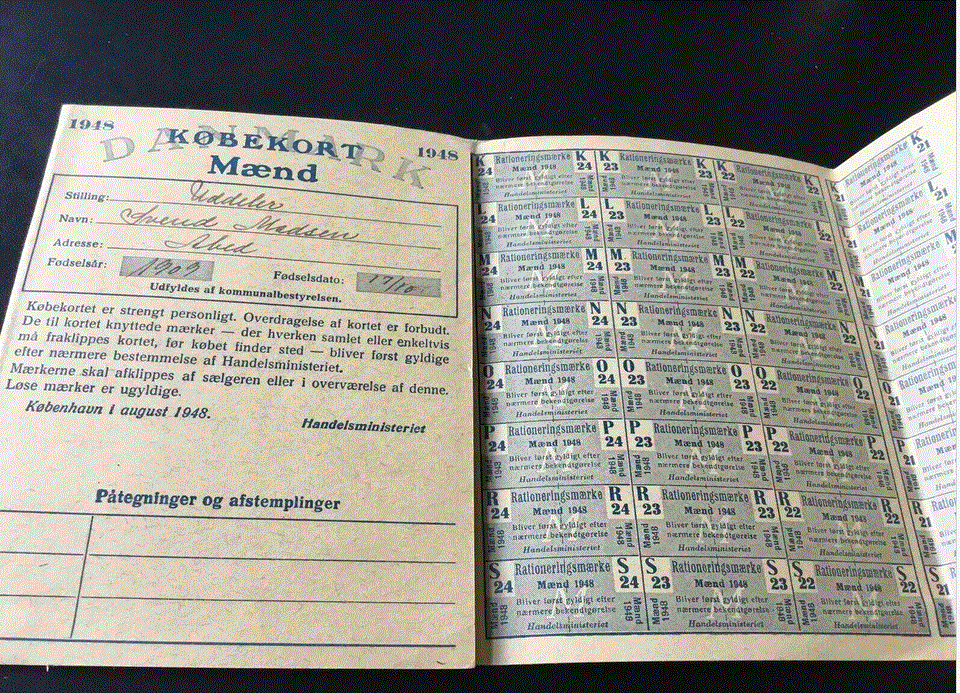 1948 KØBEKORT 1948
DANMARK
Mænd
Stilling: Uddeler
Navn: Svend Madsen
Adresse: Abed
Fødselsår: 1909 Fødselsdato: 17/10
Udfyldes af kommunalbestyrelsen.
Købekortet er strengt personligt. Overdragelse af kortet er forbudt.
De til kortet knyttede mærker — der hverken samlet eller enkeltvis
må fraklippes kortet, før købet finder sted — bliver først gyldige
efter nærmere bestemmelse af Handelsministeriet.
Mærkerne skal afklippes af sælgeren eller i overværelse af denne.
Løse mærker er ugyldige.
København 1 august 1948.
Handelsministeriet
Påtegninger og afstemplinger
K 24 Rationeringsmærke K 24 K 23 Rationeringsmærke K 23 K 22 Rationeringsmærke K 22 K 21
Mænd 1948 Mænd 1948 Mænd 1948
Bliver først gyldigt efter Bliver først gyldigt efter Bliver først gyldigt efter
nærmere bekendtgørelse nærmere bekendtgørelse nærmere bekendtgørelse
Handelsministeriet Handelsministeriet Handelsministeriet
L 24 Rationeringsmærke L 24 L 23 Rationeringsmærke L 23 L 22 Rationeringsmærke L 22 L 21
Mænd 1948 Mænd 1948 Mænd 1948
Bliver først gyldigt efter Bliver først gyldigt efter Bliver først gyldigt efter
nærmere bekendtgørelse nærmere bekendtgørelse nærmere bekendtgørelse
Handelsministeriet Handelsministeriet Handelsministeriet
M 24 Rationeringsmærke M 24 M 23 Rationeringsmærke M 23 M 22 Rationeringsmærke M 22 M 21
Mænd 1948 Mænd 1948 Mænd 1948
Bliver først gyldigt efter Bliver først gyldigt efter Bliver først gyldigt efter
nærmere bekendtgørelse nærmere bekendtgørelse nærmere bekendtgørelse
Handelsministeriet Handelsministeriet Handelsministeriet
N 24 Rationeringsmærke N 24 N 23 Rationeringsmærke N 23 N 22 Rationeringsmærke N 22 21
Mænd 1948 Mænd 1948 Mænd 1948
Bliver først gyldigt efter Bliver først gyldigt efter Bliver først gyldigt efter
nærmere bekendtgørelse nærmere bekendtgørelse nærmere bekendtgørelse
Handelsministeriet Handelsministeriet Handelsministeriet
O 24 Rationeringsmærke O 24 O 23 Rationeringsmærke O 23 O 22 Rationeringsmærke O 22 O 21
Mænd 1948 Mænd 1948 Mænd 1948
Bliver først gyldigt efter Bliver først gyldigt efter Bliver først gyldigt efter
nærmere bekendtgørelse nærmere bekendtgørelse nærmere bekendtgørelse
Handelsministeriet Handelsministeriet Handelsministeriet
P 24 Rationeringsmærke P 24 P 23 Rationeringsmærke P 23 P 22 Rationeringsmærke P 22 P 21
Mænd 1948 Mænd 1948 Mænd 1948
Bliver først gyldigt efter Bliver først gyldigt efter Bliver først gyldigt efter
nærmere bekendtgørelse nærmere bekendtgørelse nærmere bekendtgørelse
Handelsministeriet Handelsministeriet Handelsministeriet
R 24 Rationeringsmærke R 24 R 23 Rationeringsmærke R 23 R 22 Rationeringsmærke R 22 R 21
Mænd 1948 Mænd 1948 Mænd 1948
Bliver først gyldigt efter Bliver først gyldigt efter Bliver først gyldigt efter
nærmere bekendtgørelse nærmere bekendtgørelse nærmere bekendtgørelse
Handelsministeriet Handelsministeriet Handelsministeriet
S 24 Rationeringsmærke S 24 S 23 Rationeringsmærke S 23 S 22 Rationeringsmærke S 22 S 21
Mænd 1948 Mænd 1948 Mænd 1948
Bliver først gyldigt efter Bliver først gyldigt efter Bliver først gyldigt efter
nærmere bekendtgørelse nærmere bekendtgørelse nærmere bekendtgørelse
Handelsministeriet Handelsministeriet Handelsministeriet